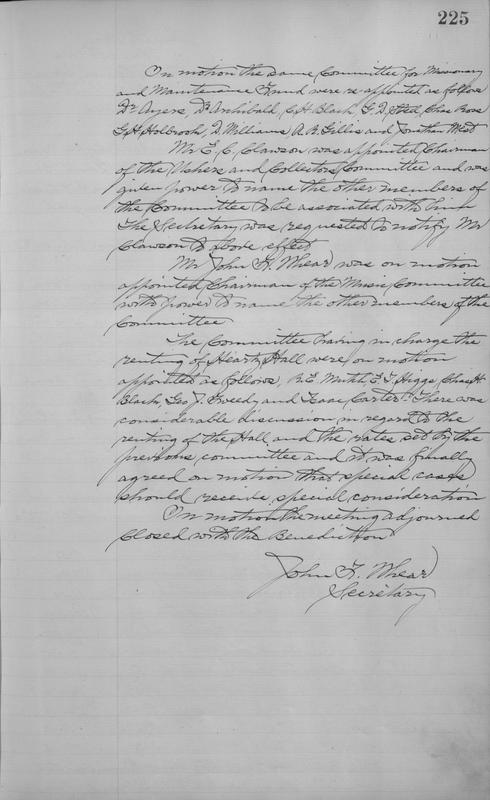 225
On motion the same Committee for Missionary
and Maintenance Fund were re-appointed as follows
Dr Ayers, Dr Archibald, C. H. Black, G. D. Steel, Chas Ross
G. H. Holbrook, D. Williams A. B. Gillis and Jonathan West
Mr E. C. Clawson was appointed Chairman
of the Ushers and Collectors Committee and was
given power to name the other members of
the Committee to be associated with him
The Secretary was requested to notify Mr
Clawson to above effect
Mr John F. Whear was on motion
appointed Chairman of the Music Committee
with power to name the other members of the
Committee
The Committee having in charge the
renting of Heartz Hall were on motion
appointed as follows, R. E. E. T. Higgs, Chas H.
Black, Geo J. Tweedy and Isaac Carter. There was
considerable discussion in regard to the
renting of the Hall and the rates set by the
previous committee and it was finally
agreed on motion that special cases
should receive special consideration
On motion the meeting adjourned
Closed with the Benediction
John F. Whear
Secretary